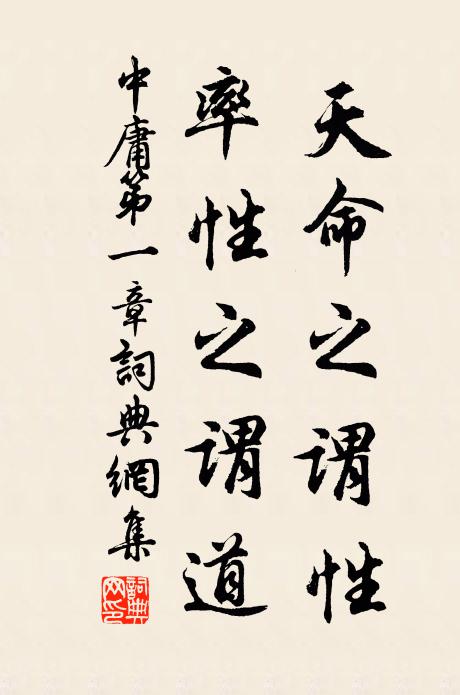 天命之謂性
率性之謂道
中庸第一章詞典網集
詞典网印